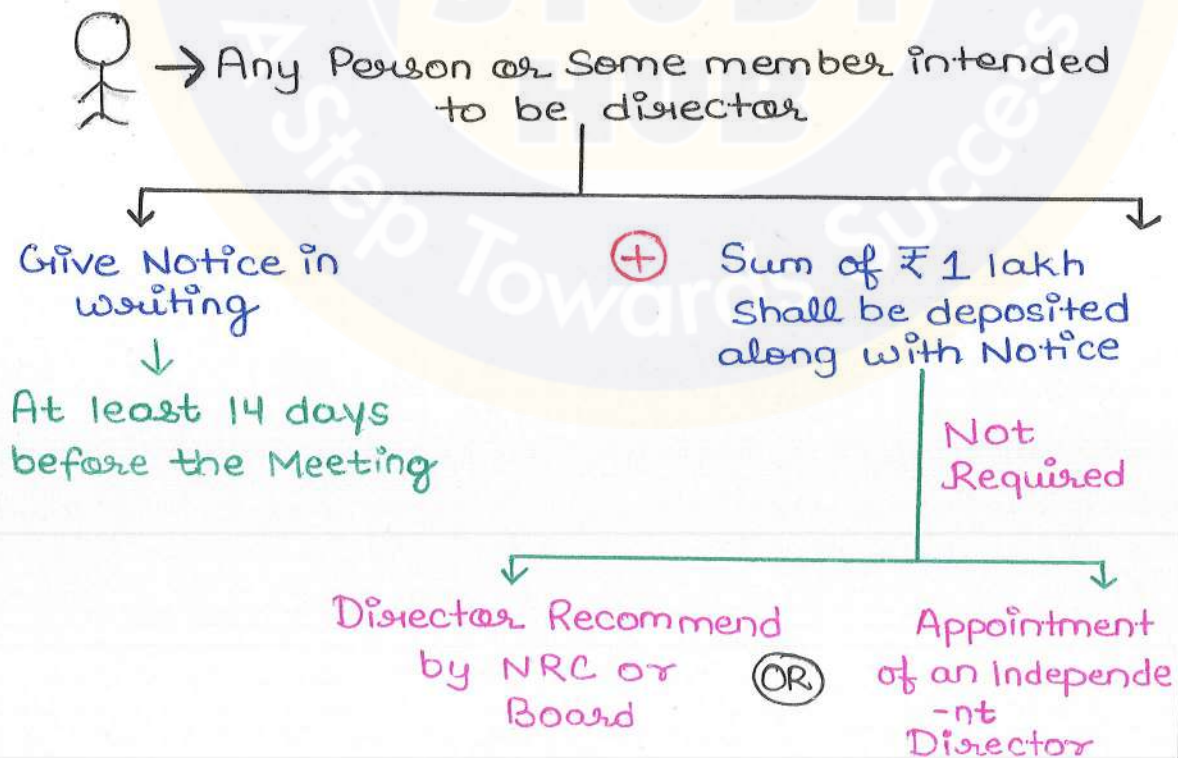 → Any Person or Some member intended
to be director
Give Notice in
writing
↓
At least 14 days
before the Meeting
+
Sum of ₹ 1 lakh
Shall be deposited
along with Notice
Not
Required
Director Recommend
by NRC or
Board
OR
Appointment
of an Independe
-nt
Director
STUDY
HUB
A Step Towards Success